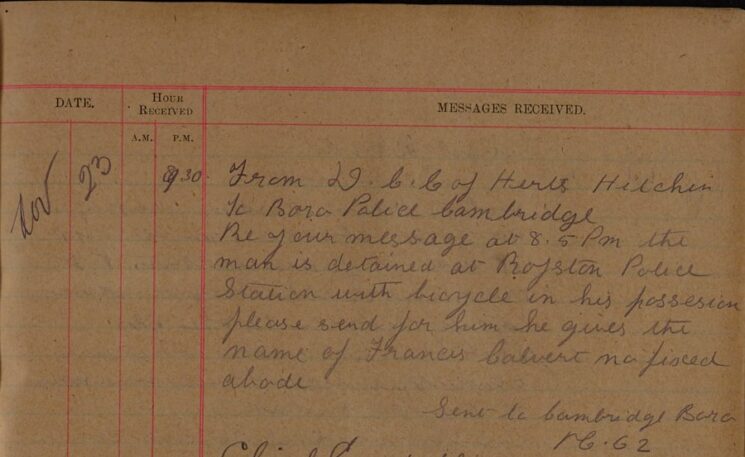 DATE. HOUR RECEIVED MESSAGES RECEIVED.
A.M. P.M.
Nov 23 9.30 From D.C.C of Herts Hitchin
To Boro Police Cambridge
Re your message at 8.5 Pm the
man is detained at Royston Police
Station with bicycle in his possesion
please send for him he gives the
name of Francis Calvert no fixed
abode
Sent to Cambridge Boro
P.C. 62